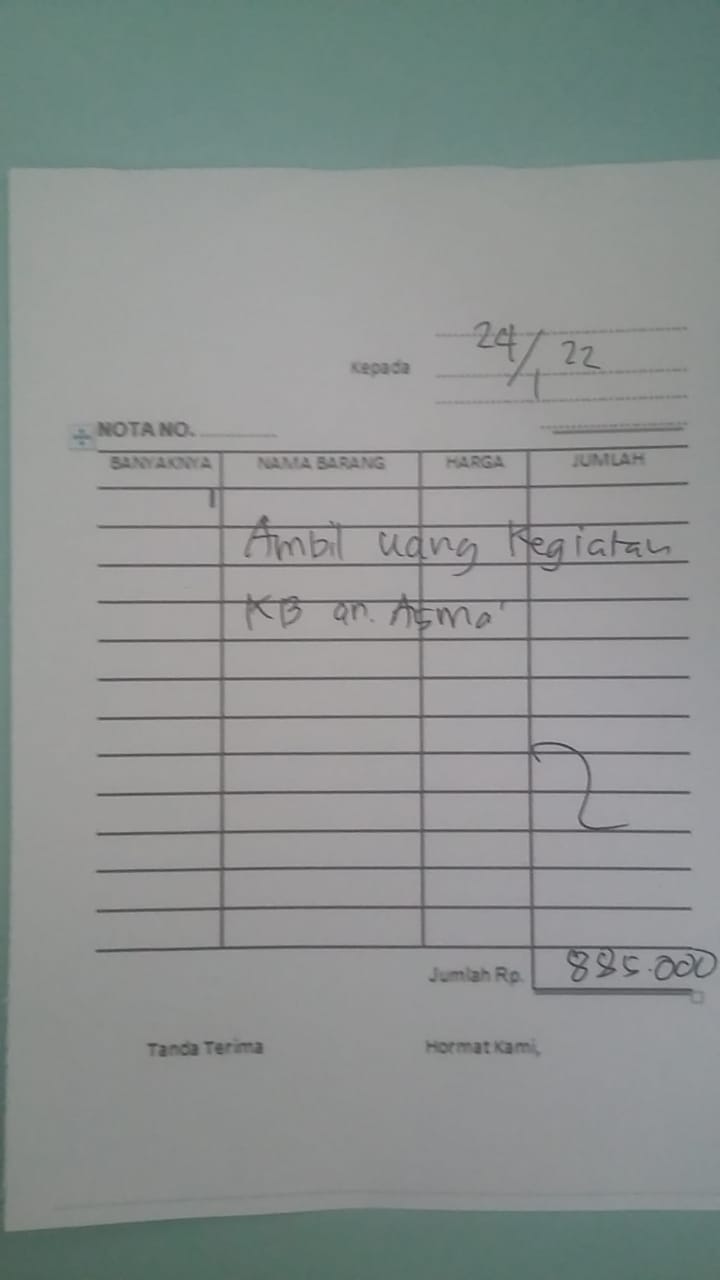 24/1 22
Kepada
NOTA NO.
BANYAKNYA NAMA BARANG HARGA JUMLAH
Ambil uang Kegiatan
KB an. Asma'
Jumlah Rp. 885.000
Tanda Terima Hormat Kami,